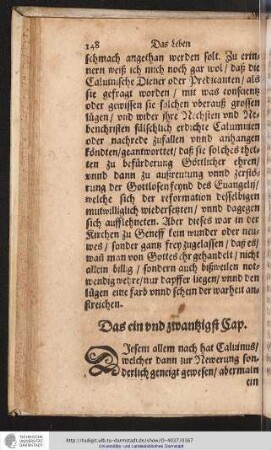 148 Das Leben
schmach angethan werden solt. Zu erin-
nern weiß ich mich noch gar wol/ daß die
Caluinische Diener oder Predicanten/ als
sie gefragt worden/ mit was conscientz
oder gewissen sie solchen vberauß grossen
lügen/ vnd wider ihre Nechsten vnd Ne-
benchristen fälschlich erdichte Calumnien
oder nachrede zufallen vnnd anhangen
köndten/ geantwortet/ daß sie solches thet-
ten zu befürderung Göttlicher ehren/
vnnd dann zu außreutung vnnd zerstö-
rung der Gottlosen feynd des Euangelij/
welche sich der reformation desselbigen
mutwilliglich widersetzten/ vnnd dagegen
sich aufflehneten. Aber dieses war in der
Kirchen zu Geneff kein wunder oder neu-
wes/ sonder gantz frey zugelassen/ daß es/
wañ man von Gottes ehr gehandelt/ nicht
allein billig/ sondern auch bißweilen not-
wendig wehre/ nur dapffer liegen/ vnnd den
lügen eine farb vnnd schein der warheit an-
streichen.
Das ein vnd zwantzigst Cap.
DJesem allem nach hat Caluinus/
welcher dann zur Newerung son-
derlich geneigt gewesen/ abermain
ein
http://tudigit.ulb.tu-darmstadt.de/show/O-4037/0167
Universitäts- und Landesbibliothek Darmstadt